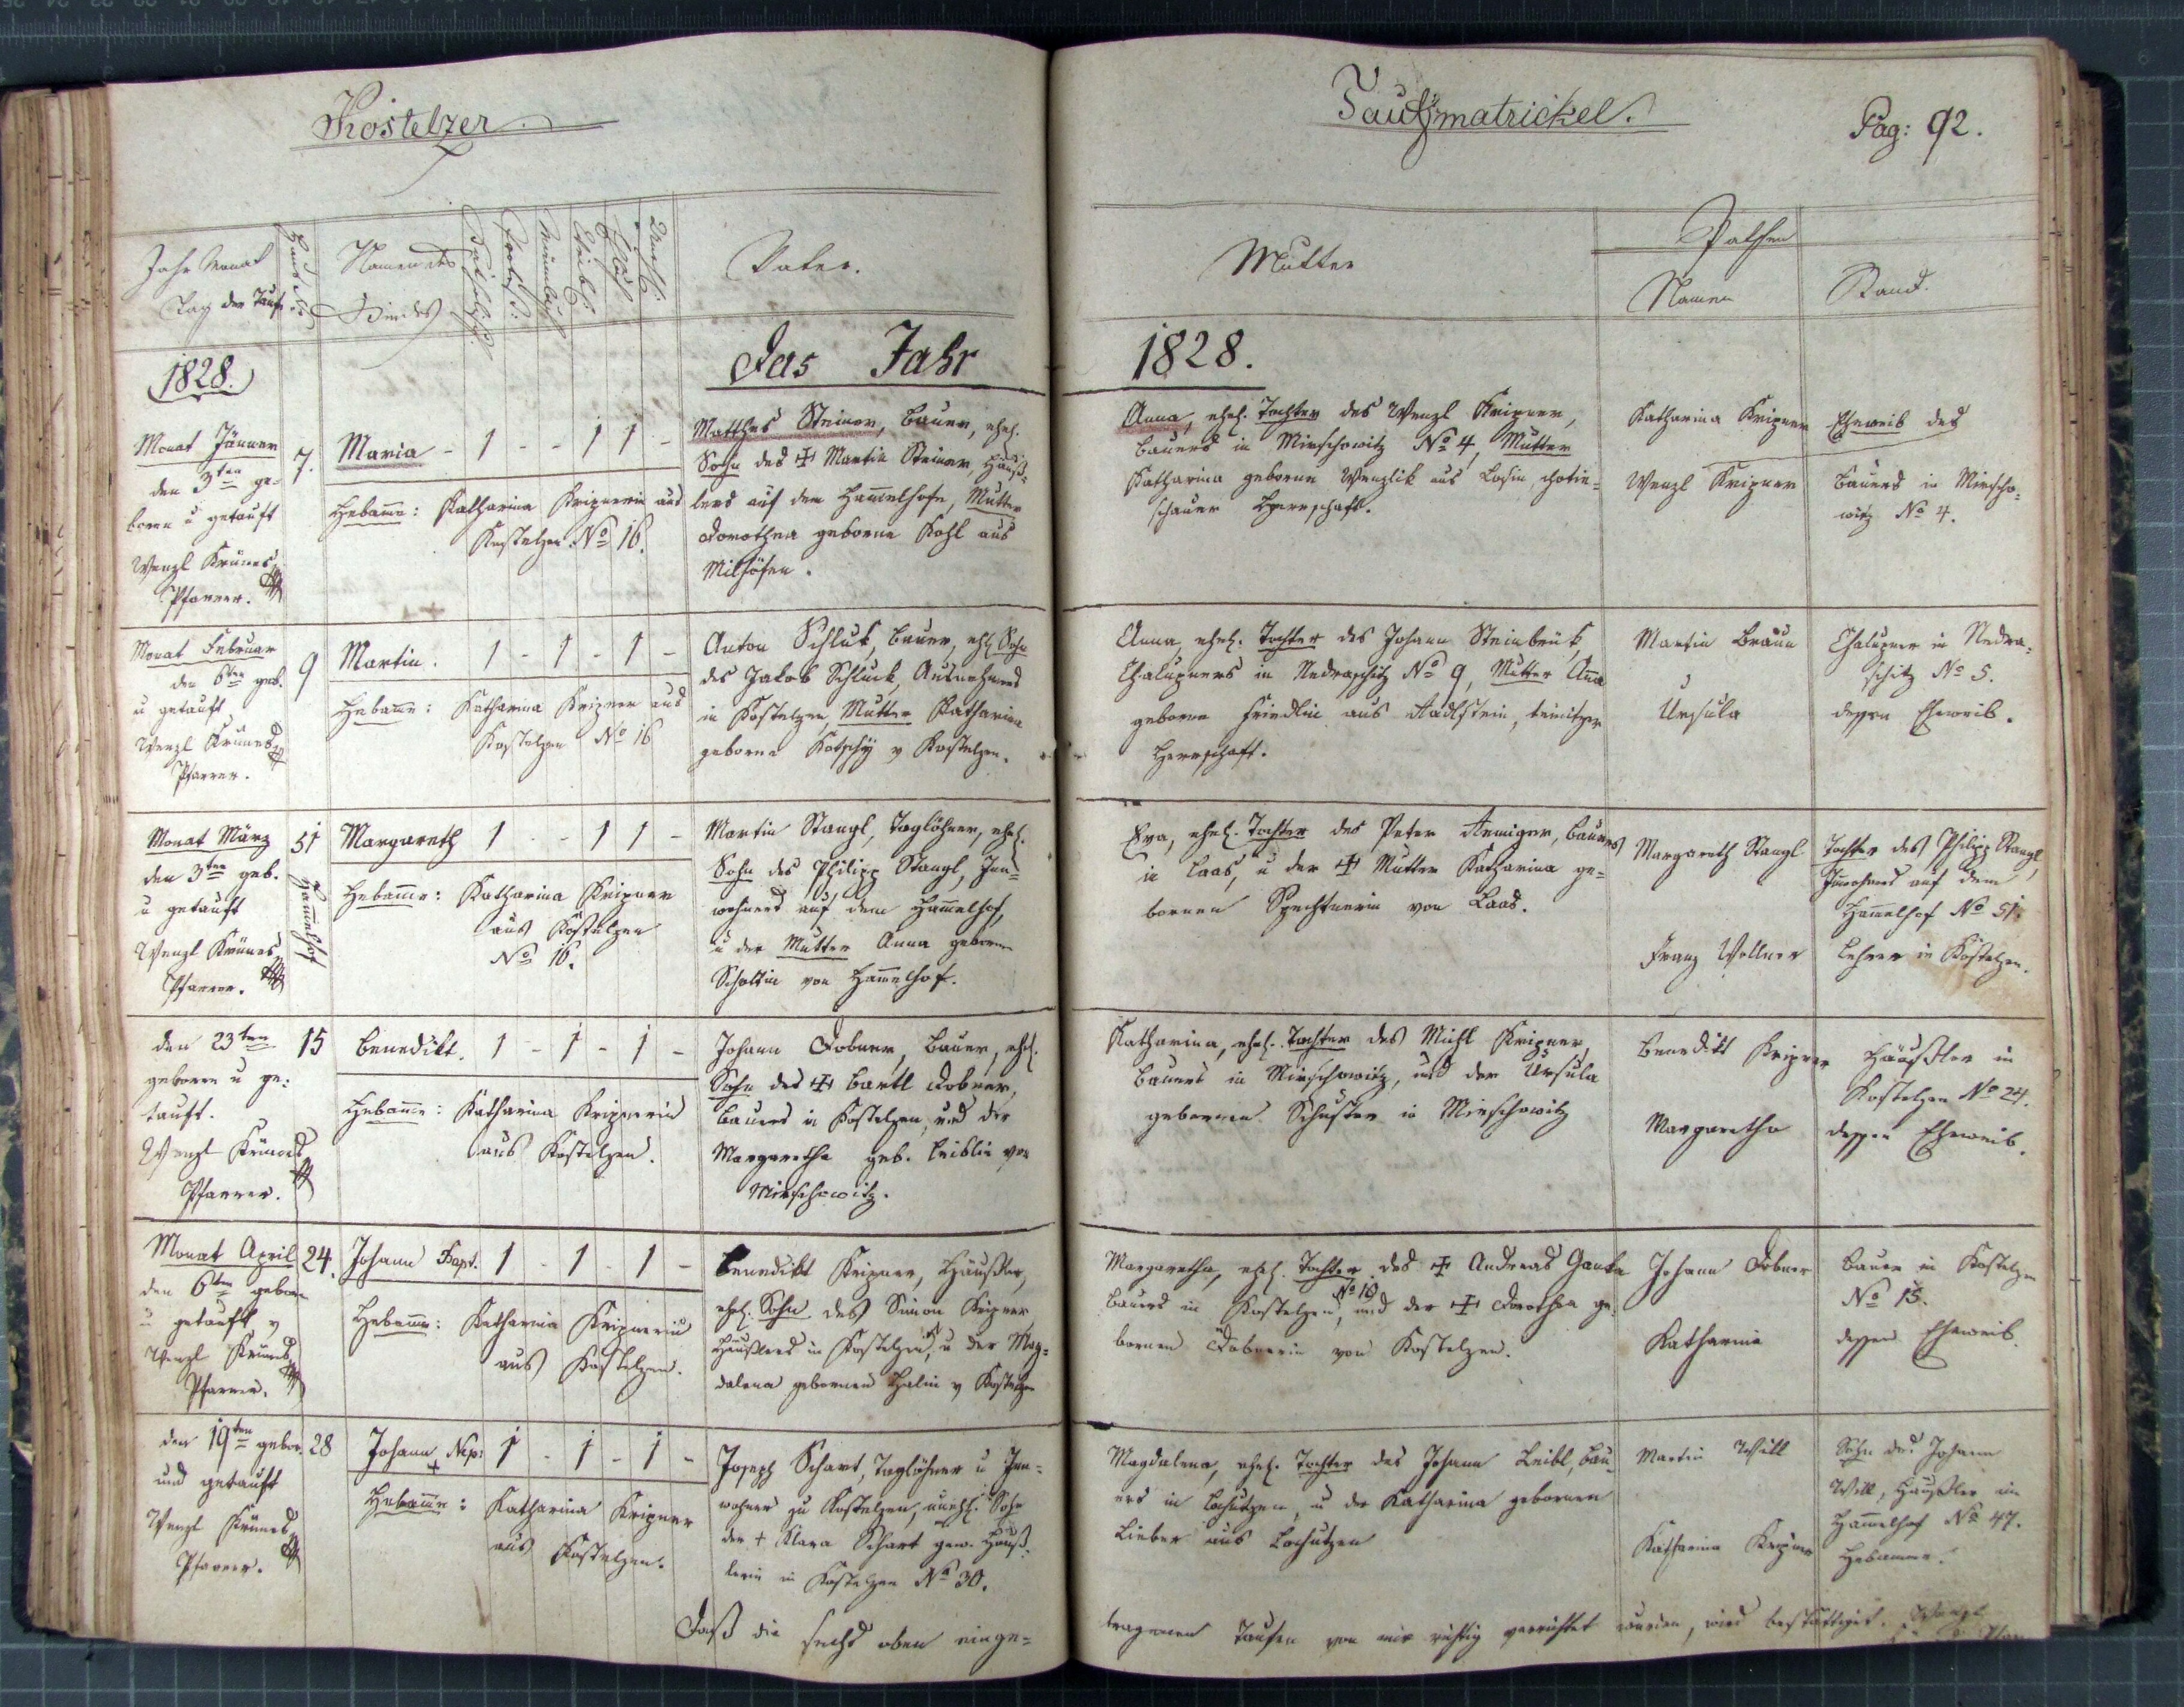 Kostelzer
Taufsmatrickel.
Pag: 92.
Jahr Monat
Tag der Taufe
Haus No
Namen des
Kindes
Vater.
Mutter
Pathen
Namen
Stand.
1828.
Das Jahr
1828.
Monat Jänner
den 3ten ge-
boren u getauft
Wenzl Krünes
Pfarrer.
7.
Maria - 1 - - 1 1 -
Hebame: Katharina Kripnerin aus
Kostelzen No 16.
Matthes Steiner, Bauer, ehel.
Sohn des ✠ Martin Steiner, Häuß-
lers auf dem Hamelhofe, Mutter
Dorothea geborne Kohl aus
Milhöfen.
Anna, ehel. Tochter des Wenzl Kripner,
Bauers in Mirschowitz No 4, Mutter
Katharina geborne Wenzlik aus Losin, chotie-
schauer Herrschaft.
Katharina Kripner
Wenzl Kripner
Eheweib des
Bauers in Mirscho-
witz No 4.
Monat Februar
den 6ten geb.
u getauft
Wenzl Krünes
Pfarrer.
9
Martin. 1 - 1 - 1 -
Hebame: Katharina Kripner aus
Kostelzen No 16
Anton Schluk, Bauer, ehl Sohn
des Jakob Schluck, Ausnehmers
in Kostelzen, Mutter Katharina
geborne Kotschy v Kostelzen.
Anna, ehel. Tochter des Johann Steinbrük,
Chalupners in Nedraschitz No 9, Mutter Ana
geborne Friedlin aus Radlstein,
Herrschaft.
Martin Braun
Ursula
Chalupner in Nedra-
schitz No 5.
dessen Eheweib.
Monat März
den 3ten geb.
u getauft
Wenzl Krünes
Pfarrer.
51
Hamelhof
Margareth 1 - - 1 1 -
Hebame: Katharina Kripner
aus Kostelzen
No 16.
Martin Stangl, Taglöhner, ehel.
Sohn des Philipp Stangl, Inn-
wohners auf dem Hamelhof,
u der Mutter Anna geborne
Scholtin von Hamelhof.
Eva, ehel. Tochter des Peter Aeniger, Bauers
in Laas, u der ✠ Mutter Katharina ge-
bornen Spechtnerin von Laas.
Margareth Stangl
Franz Wollner
Tochter des Philipp Stangl,
Inwohners auf dem
Hamelhof No 51.
Lehrer in Kostelzen.
den 23ten
geboren u ge-
tauft.
Wenzl Krünes
Pfarrer.
15
Benedikt. 1 - 1 - 1 -
Hebame: Katharina Kripnerin
aus Kostelzen.
Johann Dobner, Bauer, ehel.
Sohn des ✠ Bartl Dobner,
Bauers in Kostelzen, und der
Margaretha geb. Leiblin von
Mirschowitz.
Katharina, ehel. Tochter des Michl Kripner,
Bauers in Mirschowitz, und der Ursula
gebornen Schuster in Mirschowitz
Benedikt Kripner
Margaretha
Häußler in
Kostelzen No 24.
dessen Eheweib.
Monat April
den 6ten geboren
u getauft v
Wenzl Krünes
Pfarrer.
24.
Johann Bapt. 1 - 1 - 1 -
Hebame: Katharina Kripnerin
aus Kostelzen.
Benedikt Kripner, Häußler,
ehel. Sohn des Simon Kripner
Häußlers in Kostelzen, u der Mag-
dalena gebornen v Kostelzen
Margaretha, ehel. Tochter des ✠ Andreas
Bauers in Kostelzen No 10, und der ✠ Dorothea ge-
bornen Dobnerin von Kostelzen.
Johann Dobner
Katharina
Bauer in Kostelzen
No 15.
dessen Eheweib.
den 19ten gebor.
und getauft
Wenzl Krünes
Pfarrer.
28
Johann Nep: 1 - 1 - 1 -
+
Hebame: Katharina Kripner
aus Kostelzen.
Joseph Schart, Taglöhner u Inn-
wohner zu Kostelzen, unehl. Sohn
der + Klara Schart gew. Häuß-
lerin in Kostelzen No 30.
Magdalena, ehel. Tochter des Johann Leibl, Bau-
ers in Lochutzen, u der Katharina gebornen
Lieber aus Lochutzen
Martin Will
Katharina Kripner
Sohn des Johann
Will, Häußler im
Hamelhof No 47.
Hebamme.
Daß die sechs oben einge-
tragenen Taufen von mir richtig verrichtet wurden, wird bestättiget. Wenzl